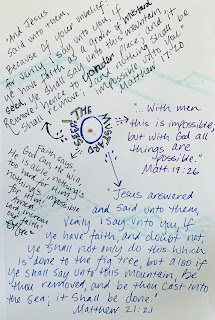 And Jesus
said unto them,
Because of your unbelief:
for verily I say unto you, if
ye have faith as a grain of mustard
seed, ye shall say unto this mountain,
Remove hence to yonder place; and it
shall remove; and nothing shall be
impossible unto you.
Matthew 17:20
THE
MUSTARD
SEED
"With men
this is impossible;
but with God all
things are
possible."
Matt. 19:26
Faith says
God can. He is
able. Nothing's
too hard for Him;
nothing's impossible
for Him!
Lord, increase
our faith!
"Jesus answered
and said unto them,
Verily I say unto you, If
ye have faith, and doubt not,
ye shall not only do this which
is done to the fig tree, but also if
ye shall say unto this mountain, Be
thou removed, and be thou cast into
the sea; it shall be done."
Matthew 21:21